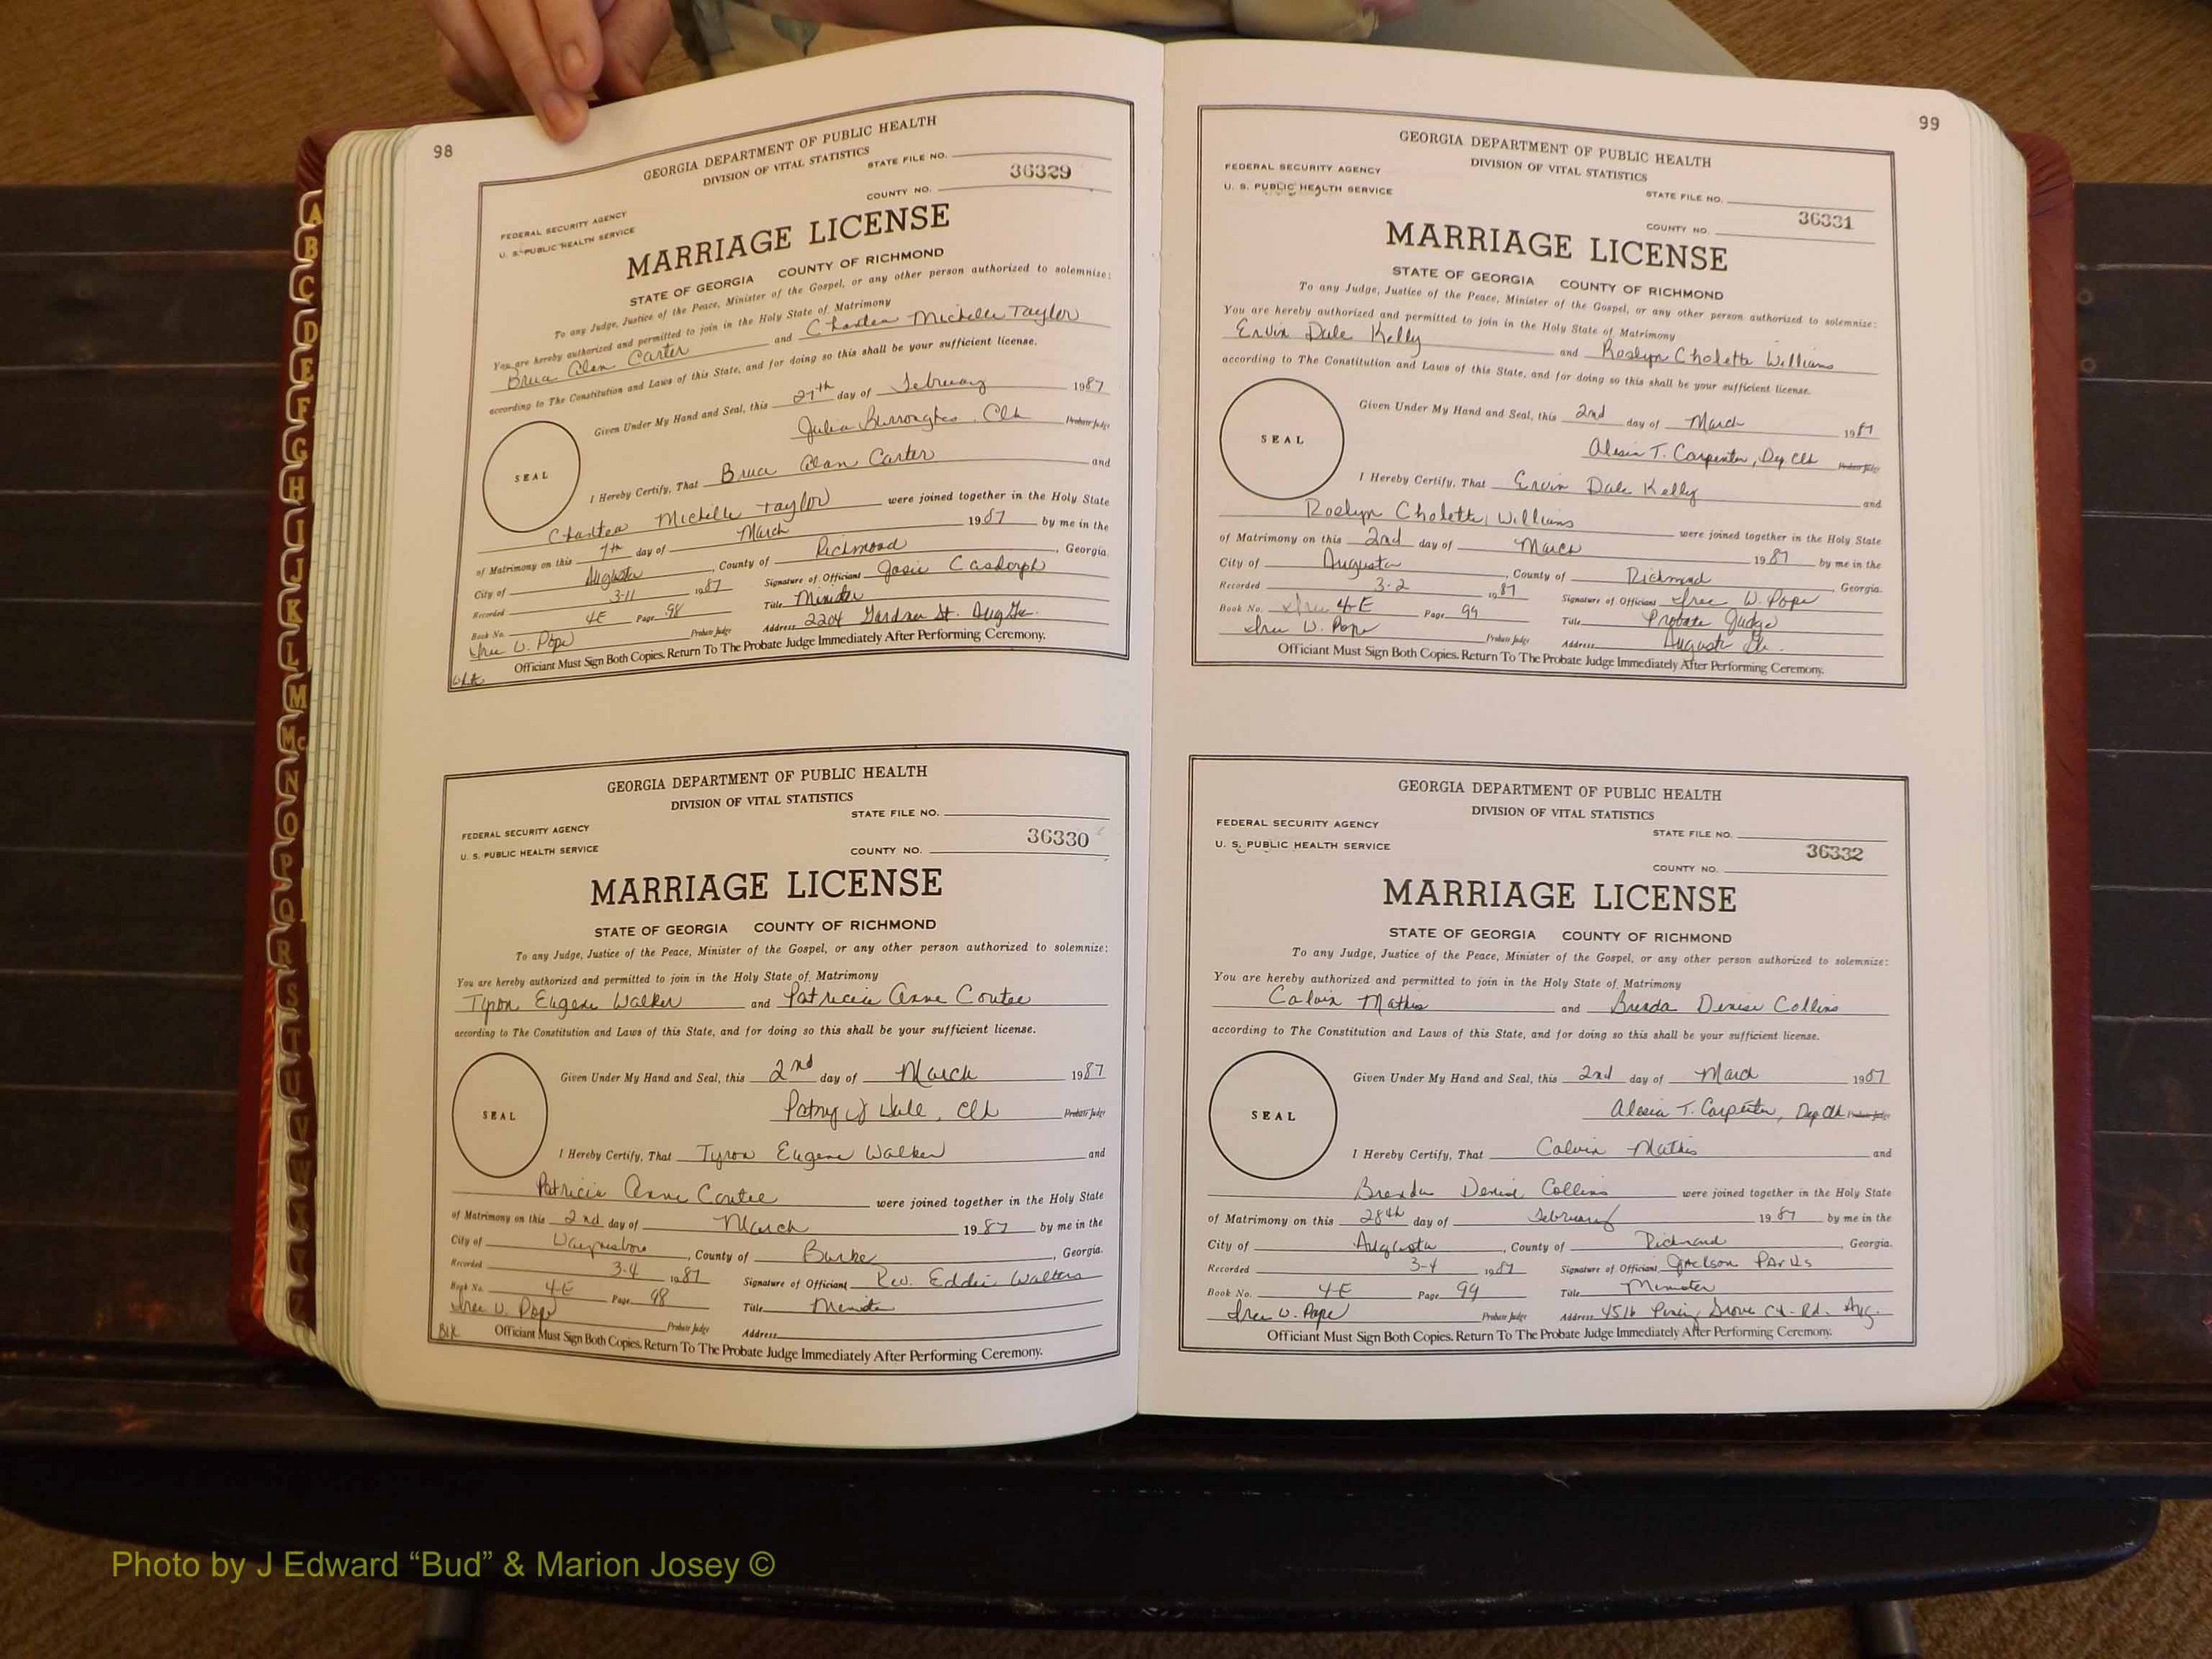 98
GEORGIA DEPARTMENT OF PUBLIC HEALTH
DIVISION OF VITAL STATISTICS
STATE FILE NO.
36329
COUNTY NO.
FEDERAL SECURITY AGENCY
U. S. PUBLIC HEALTH SERVICE
MARRIAGE LICENSE
STATE OF GEORGIA COUNTY OF RICHMOND
To any Judge, Justice of the Peace, Minister of the Gospel, or any other person authorized to solemnize:
You are hereby authorized and permitted to join in the Holy State of Matrimony
Bruce Alan Carter and Michelle Taylor
according to The Constitution and Laws of this State, and for doing so this shall be your sufficient license.
Given Under My Hand and Seal, this 27th day of February 1987
Julia Burroughs, Clk Probate Judge
SEAL
I Hereby Certify, That Bruce Alan Carter and
Michelle Taylor were joined together in the Holy State
of Matrimony on this 7th day of March 1987 by me in the
City of Augusta, County of Richmond, Georgia.
Recorded 3-11 1987 Signature of Officiant Josie Casdorph
Book No. 4E Page 98 Title Minister
W. Pope Probate Judge Address 2204 Gardner St. Aug Ga.
Officiant Must Sign Both Copies. Return To The Probate Judge Immediately After Performing Ceremony.
GEORGIA DEPARTMENT OF PUBLIC HEALTH
DIVISION OF VITAL STATISTICS
STATE FILE NO.
FEDERAL SECURITY AGENCY
36330
U. S. PUBLIC HEALTH SERVICE
COUNTY NO.
MARRIAGE LICENSE
STATE OF GEORGIA COUNTY OF RICHMOND
To any Judge, Justice of the Peace, Minister of the Gospel, or any other person authorized to solemnize:
You are hereby authorized and permitted to join in the Holy State of Matrimony
Tyron Eugene Walker and Patricia Anne Coutee
according to The Constitution and Laws of this State, and for doing so this shall be your sufficient license.
Given Under My Hand and Seal, this 2nd day of March 1987
Clk Probate Judge
SEAL
I Hereby Certify, That Tyron Eugene Walker and
Patricia Anne Coutee were joined together in the Holy State
of Matrimony on this 2nd day of March 1987 by me in the
City of Waynesboro, County of Burke, Georgia.
Recorded 3-4 1987 Signature of Officiant Rev. Eddie Walters
Book No. 4-E Page 98 Title Minister
W. Pope Probate Judge Address
Blk
Officiant Must Sign Both Copies. Return To The Probate Judge Immediately After Performing Ceremony.
99
GEORGIA DEPARTMENT OF PUBLIC HEALTH
DIVISION OF VITAL STATISTICS
FEDERAL SECURITY AGENCY
U. S. PUBLIC HEALTH SERVICE
STATE FILE NO.
36331
COUNTY NO.
MARRIAGE LICENSE
STATE OF GEORGIA COUNTY OF RICHMOND
To any Judge, Justice of the Peace, Minister of the Gospel, or any other person authorized to solemnize:
You are hereby authorized and permitted to join in the Holy State of Matrimony
Ervin Dale Kelly and Roslyn Cholette Williams
according to The Constitution and Laws of this State, and for doing so this shall be your sufficient license.
Given Under My Hand and Seal, this 2nd day of March 1987
Alesia T. Carpenter, Dep Clk Probate Judge
SEAL
I Hereby Certify, That Ervin Dale Kelly and
Roslyn Cholette Williams were joined together in the Holy State
of Matrimony on this 2nd day of March 1987 by me in the
City of Augusta, County of Richmond, Georgia.
Recorded 3-2 1987 Signature of Officiant W. Pope
Book No. 4-E Page 99 Title Probate Judge
W. Pope Probate Judge Address Augusta Ga.
Officiant Must Sign Both Copies. Return To The Probate Judge Immediately After Performing Ceremony.
GEORGIA DEPARTMENT OF PUBLIC HEALTH
DIVISION OF VITAL STATISTICS
FEDERAL SECURITY AGENCY
STATE FILE NO.
U. S. PUBLIC HEALTH SERVICE
36332
COUNTY NO.
MARRIAGE LICENSE
STATE OF GEORGIA COUNTY OF RICHMOND
To any Judge, Justice of the Peace, Minister of the Gospel, or any other person authorized to solemnize:
You are hereby authorized and permitted to join in the Holy State of Matrimony
Calvin Mathis and Brenda Denise Collins
according to The Constitution and Laws of this State, and for doing so this shall be your sufficient license.
Given Under My Hand and Seal, this 2nd day of March 1987
Alesia T. Carpenter, Dep Clk Probate Judge
SEAL
I Hereby Certify, That Calvin Mathis and
Brenda Denise Collins were joined together in the Holy State
of Matrimony on this 28th day of February 1987 by me in the
City of Augusta, County of Richmond, Georgia.
Recorded 3-4 1987 Signature of Officiant Jackson Parks
Book No. 4-E Page 99 Title Minister
W. Pope Probate Judge Address 4516 Piney Grove Ch. Rd. Aug.
Officiant Must Sign Both Copies. Return To The Probate Judge Immediately After Performing Ceremony.
A
B
C
D
E
F
G
H
I
J
K
L
M
Mc
N
O
P
Q
R
S
T
U
V
W
Photo by J Edward “Bud” & Marion Josey ©